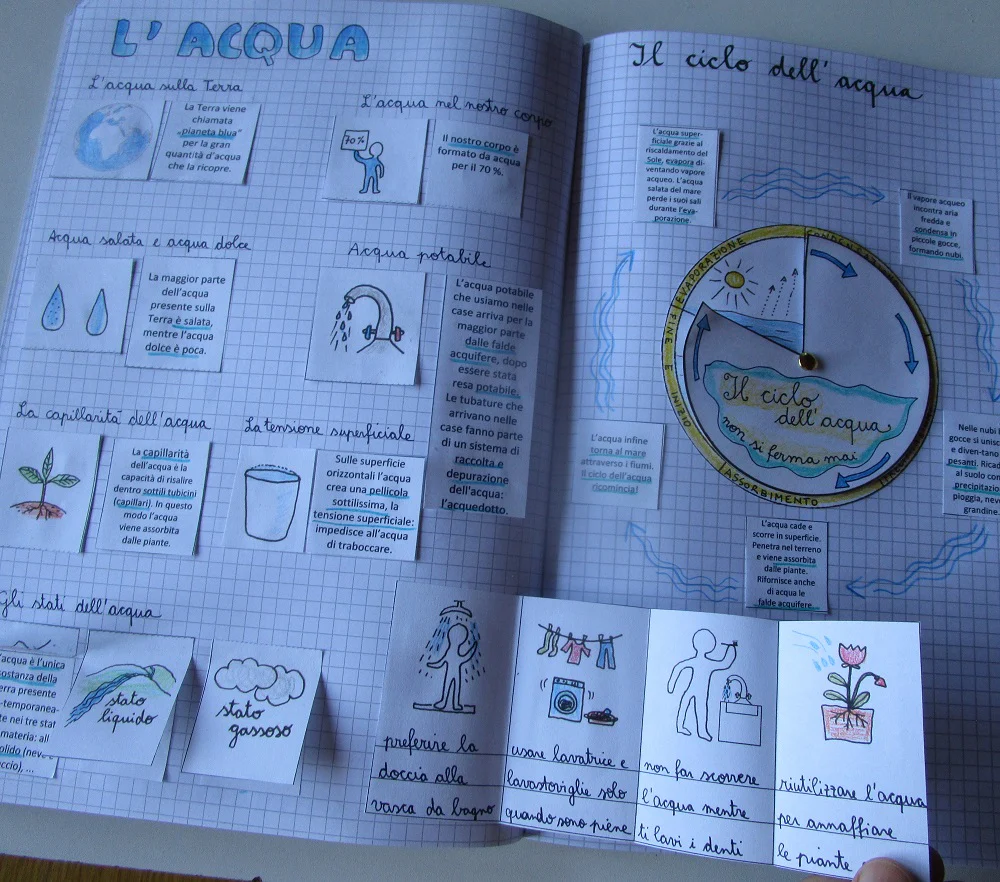 L'ACQUA
L'acqua sulla Terra
La Terra viene
chiamata
„pianeta blu"
per la gran
quantità d'acqua
che la ricopre.
L'acqua nel nostro corpo
70%
Il nostro corpo è
formato da acqua
per il 70 %.
Acqua salata e acqua dolce
La maggior parte
dell'acqua
presente sulla
Terra è salata,
mentre l'acqua
dolce è poca.
Acqua potabile
L'acqua potabile
che usiamo nelle
case arriva per la
maggior parte
dalle falde
acquifere, dopo
essere stata
resa potabile.
Le tubature che
arrivano nelle
case fanno parte
di un sistema di
raccolta e
depurazione
dell'acqua:
l'acquedotto.
La capillarità dell'acqua
La capillarità
dell'acqua è la
capacità di risalire
dentro sottili tubicini
(capillari). In questo
modo l'acqua
viene assorbita
dalle piante.
La tensione superficiale
Sulle superficie
orizzontali l'acqua
crea una pellicola
sottilissima, la
tensione superficiale:
impedisce all'acqua
di traboccare.
Gli stati dell'acqua
acqua è l'unica
ostanza della
erra presente
-temporanea-
te nei tre stat
materia: all
olido (neve
ccio), ...
stato
liquido
stato
gassoso
preferire la
doccia alla
vasca da bagno
usare lavatrice e
lavastoviglie solo
quando sono piene
non far scorrere
l'acqua mentre
ti lavi i denti
riutilizzare l'acqua
per annaffiare
le piante
Il ciclo dell'acqua
L'acqua super-
ficiale grazie al
riscaldamento del
Sole, evapora di-
ventando vapore
acqueo. L'acqua
salata del mare
perde i suoi sali
durante l'eva-
porazione.
Il vapore acqueo
incontra aria
fredda e
condensa in
piccole gocce,
formando nubi.
EVAPORAZIONE
FINE E INIZIO
ASSORBIMENTO
Il ciclo
dell'acqua
non si ferma mai
Nelle nubi l
gocce si unisc
e diven-tano
pesanti. Ricad
al suolo con
precipitazio
pioggia, neve
grandine.
L'acqua cade e
scorre in superficie.
Penetra nel terreno
e viene assorbita
dalle piante.
Rifornisce anche
di acqua le
falde acquifere.
L'acqua infine
torna al mare
attraverso i fiumi.
Il ciclo dell'acqua
ricomincia!